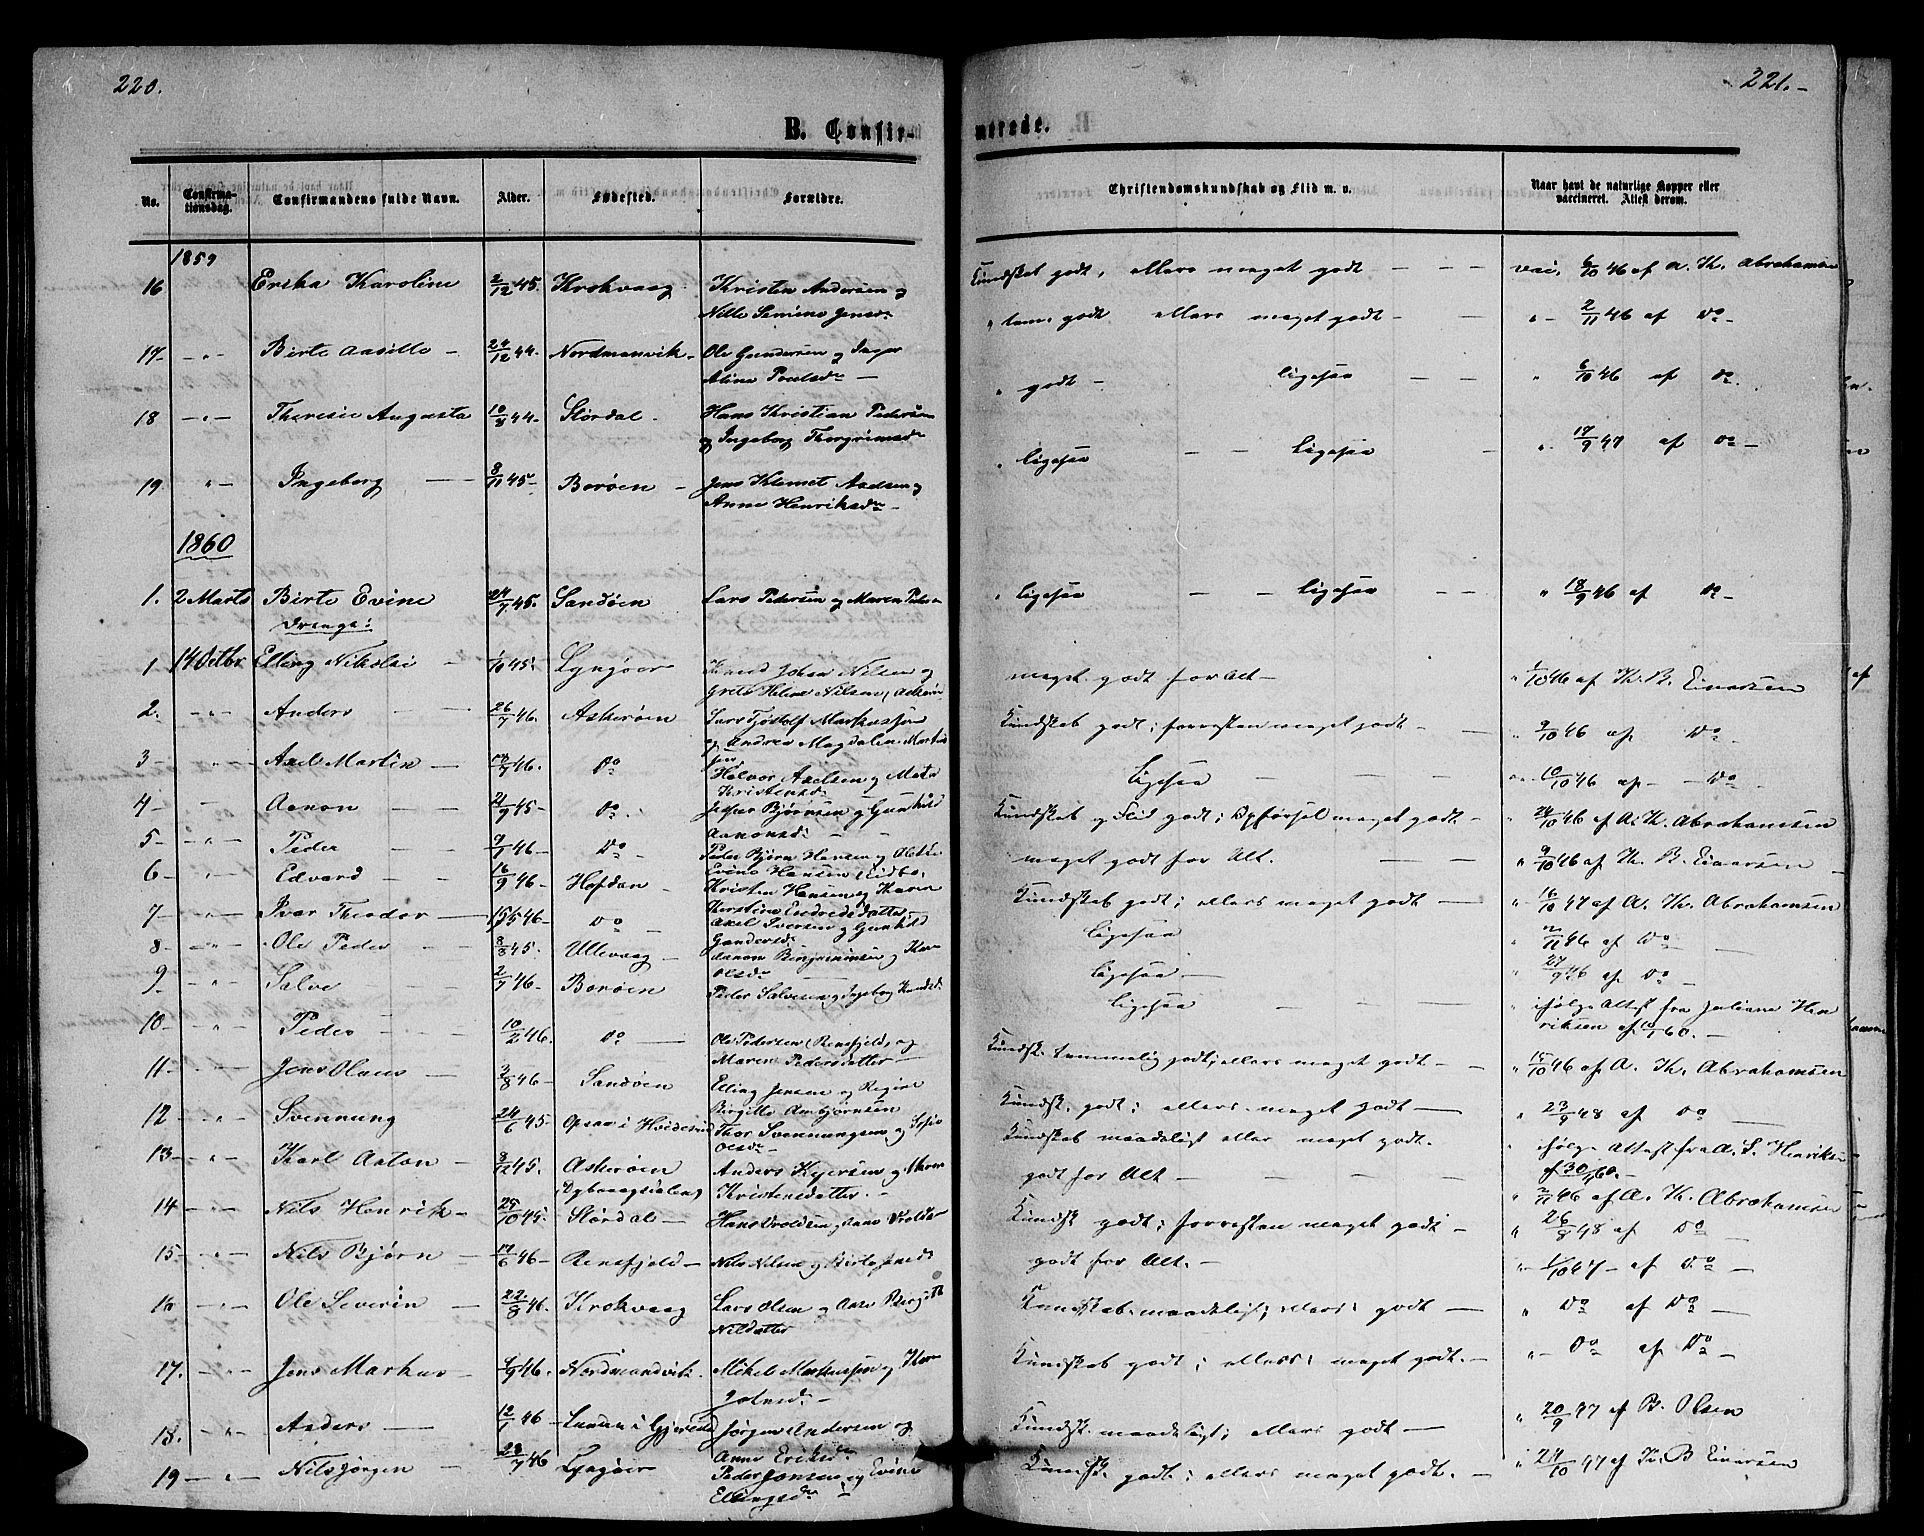 220.
B. Confir-
No.
Confirma-
tionsdag.
Confirmandens fulde Navn.
Alder.
Fødested.
Forældre.
1859
16 Erika Karoline 2/12 45. Krokvaag Kristen Andersen og
17 - " - Birte Aasille - 24/12 44. Nordmanvik - Ole Gundersen og Inger
Aline Poulsdr -
18 - " - Theresie Augusta 10/8 44. Stordal - Hans Kristian Pedersen
og Ingeborg Thorgrimsdr
19 " - Ingeborg 8/11 45 - Borøen - Jens Klemet Axelsen og
Anne Henriksdr -
1860
1. 2 Marts Birte Evine 24/7 45. Sandøen Lars Pedersen og Maren
Drenge:
1 14 Octbr Elling Nikolai - 1/10 45. Lyngøer Knud Johan Nilsen og
Grete Helene Nilsen
2. - " - Anders 26/7 46. Askerøen Lars Tjøstolf Markussen
og Andrea Magdalen
3 - " - Axel Martin - 46. Do Halvor Axelsen og Meta
Kristensdr
4 - " - Aanon 21/9 45 - Do. Jesper Bjørnsen og Gunhild
Aanonsdr
5 - " - Peder 9/1 46 - Do Peder Bjørn Hansen og
6 - " - Edvard 16/9 46 - Hofdan - Kristen Hansen og Karen
7 - " - Ivar Theodor - 15/5 46 - Do Axel Iversen og Gunhild
Gundersdr
8 - " - Ole Peder 8/3 45. Ullevaag - Aanon Bengrimsen og
Olsdr
9 - " - Salve 2/7 46 - Borøen Peder Salvesen og Ingeborg Knudsd
10 - " - Peder 10/2 46. Do Ole Pedersen Rensfjeld, og
Maren Pedersdatter
11 - " - Jens Olaus - 3/8 46 - Sandøen Elling Jensen og Regine
Birgitte Anbjørnsen
12 " Svennung 24/6 45 - Thor Svennungsen og
Olsdr
13 - " - Karl Anton - 8/12 45. Askerøen Anders Kjersen og Maren
Kristensdatter -
14 - " - Nils Henrik - 25/10 45. Stordal - Hans
15 - " - Nils Bjørn - 17/6 46 - Rensfjeld - Nils Nilsen og Birte Jensd
16 - " - Ole Severin - 22/8 46. Krokvaag Lars Olsen og
Nilsdatter
17. - " - Jens Markus - 9/9 46. Nordmandvik - Mikel Markussen og
18. - " - Anders - 12/1 46 - Jørgen Andersen og
Anne Eriksdr
19 - " - Nils Jørgen - 23/7 46 Lyngøer Peder Jensen og Evine
Ellingsdr
221. -
merede.
Christendomskundskab og Flid m. v.
Naar havt de naturlige Kopper eller
vaccineret. Attest derom.
Kundskab godt, ellers meget godt - - - vac. 6/10 46 af A. Th. Abrahamsen
" tem. godt ellers meget godt - - " - 2/11 46 af Do -
" godt - ligesaa - - " 6/10 46 af Do.
" ligesaa - - ligesaa - " 17/9 47 af Do -
" ligesaa - - ligesaa - - " 18/9 46 af Do -
meget godt for Alt - " 1/10 46 af Th. B. Einersen
Kundskab godt; forresten meget godt - - " 9/10 46 af Do -
ligesaa - - - - 10/10 46 af - - Do
Kundskab og Flid godt; Opførsel meget godt - " 24/10 46 af A. Th. Abrahamsen
meget godt for Alt. - - " 9/10 46 af Th. B. Einersen
Kundskab godt; ellers meget godt - " 16/10 47 af A. Th. Abrahamsen
ligesaa " 2/11 46 af Do
ligesaa - " 27/9 46 af Do -
ligesaa - - - " ifølge Attest fra Juliane Hen
riksen af 60. -
Kundsk. temmelig godt; ellers meget godt - - " 15/10 46 af A. Th. Abrahamsen
Kundsk. godt; ellers meget godt - " 23/9 48 af Do
Kundskab maadeligt ellers meget godt. " ifølge Attest fra A. S. Henriksen
godt for Alt - - - - af 30/ 60. -
" 2/11 46 af A. Th. Abrahamsen
Kundsk godt; forresten meget godt - " 26/8 48 af Do
godt for Alt. - - - " 1/10 47 - af Do -
Kundskab maadeligt; ellers godt - " Do af Do -
Kundskab godt; ellers meget godt. - " - Do af Do -
Kundsk. maadeligt; ellers godt - " 20/9 47 af B. Olsen
Kundsk. godt; ellers meget godt. - " 24/10 47 af Th. B Einersen